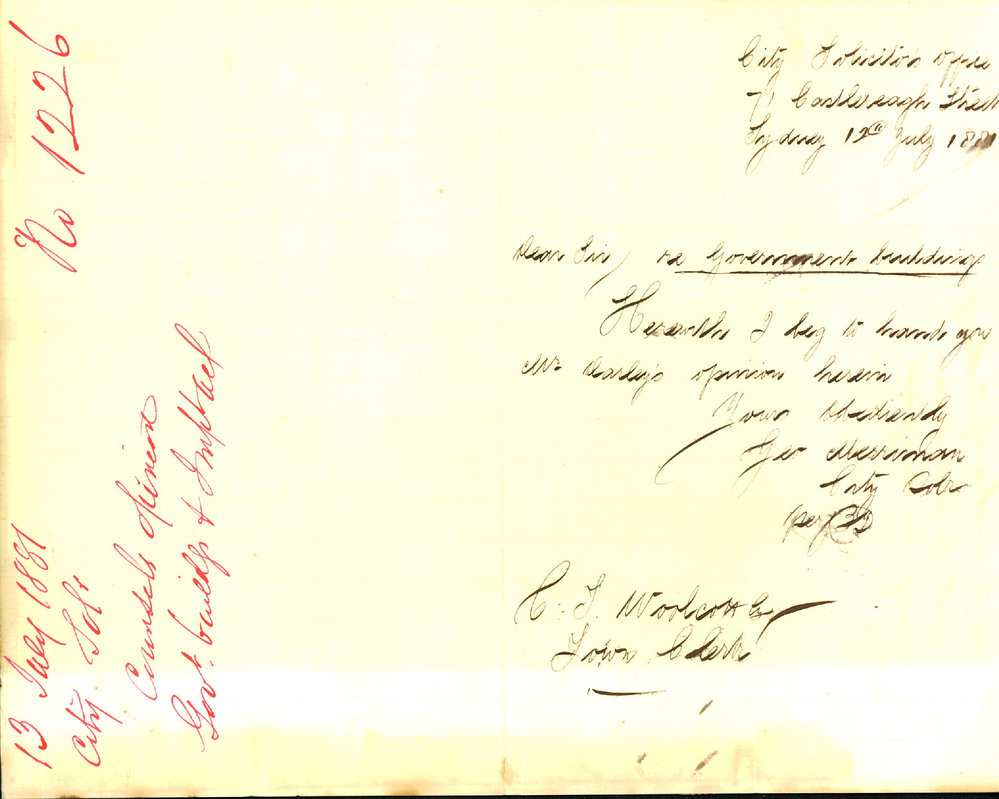 No 1226
13 July 1881
City Solr
Counsels opinion
Govt. buildgs & Impt Act
City Solicitor's Office
71 Castlereagh Street
Sydney 12th July 1881
Dear Sir, re Government buildings
Herewith I beg to hand you
Mr. Darley's opinion herein
Yours Obediently
Geo Merriman
City Solr
per
C. H. Woolcott Esq
Town Clerk